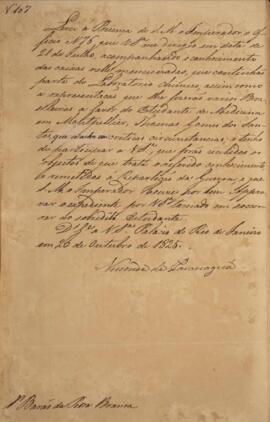 Nº 107
Levei à Presença de S. M. o Imperador o Of-
ficio Nº 6, que V. Sª me dirigio em data de
21 de Julho, acompanhando o conhecimento
das caixas nelle mencionadas, que continhão
parte do Laboratorio Chimico, assim como
a representação que lhe fizerão varios Bra-
sileiros a favor do Estudante de Medicina
em Montpellier, Gomes dos San-
tos, que se acha em criticas circunstancias: e tenho
de participar a V. Sª que forão recebidos os
objectos de que trata o referido conhecimento
e remettidos á Repartição da Guerra, e que
S. M. o Imperador Houve por bem Appro-
var o expediente por V. Sª tomado em soccor-
rer ao sobredito Estudante.
Ds. Ge. a V. Sª Palacio do Rio de Janeiro
em 20 de Outubro de 1825.
Visconde de Paranaguá
Sr. Barão da Pedra Branca